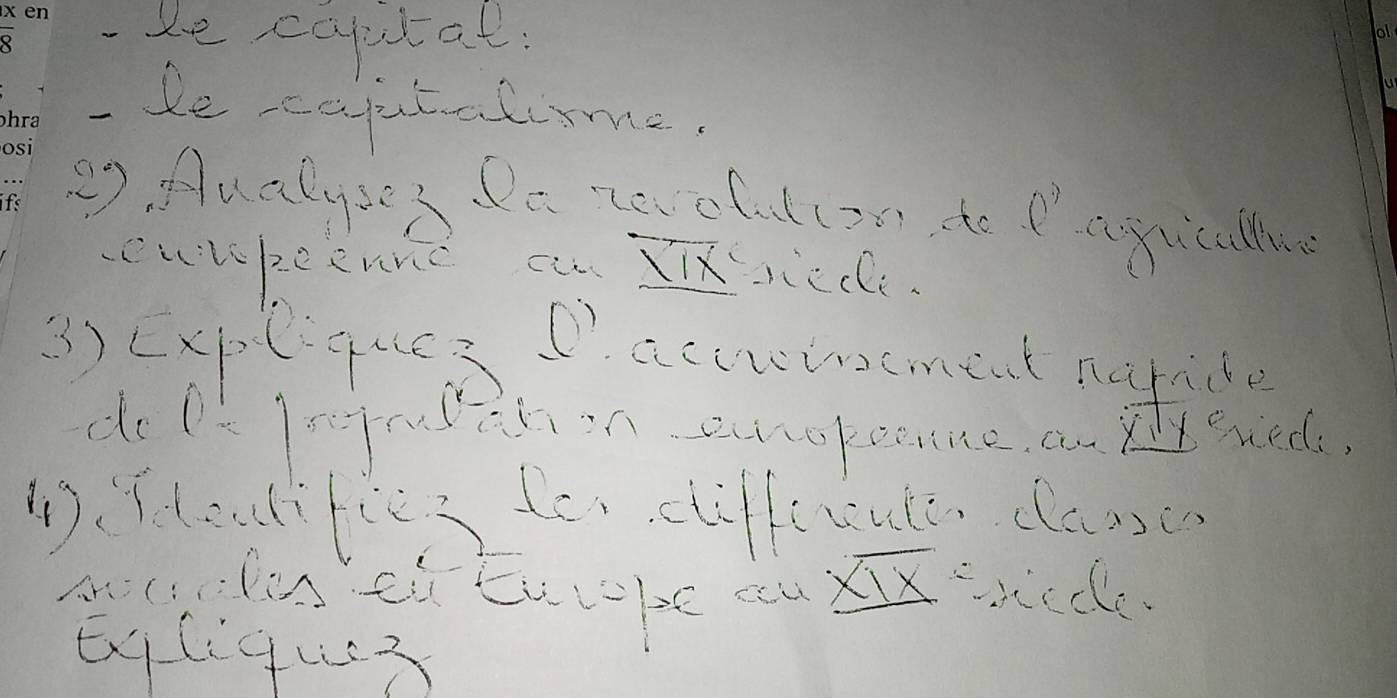 x en
8
- le capital.
- le capitalisme.
phra
osi
...
ifs
2) Analysez la revolution de l'agriculture
européenne au XIXe siecle.
3) Expliquez l'accroissement rapide
de la population européenne au XIXe siecle.
4) Identifiez les differentes classes
sociales en Europe au XIXe siecle.
Expliquez